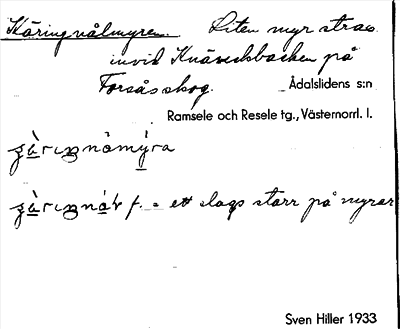 Käringnålmyren. Liten myr strax
invid Knäreksbacken på
Forsåsskog. Ådalslidens s:n
Ramsele och Resele tg., Västernorrl. l.
f. = ett slags starr på myrar
Sven Hiller 1933